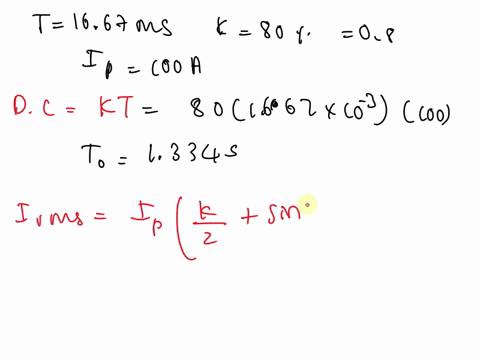 T = 16.67 ms K = 80 %. = 0.8
Ip = 100 A
D.C = KT = 80 (16.67 × 10^-3) (100)
To = 1.334 s
Irms = Ip ( k/2 + sin